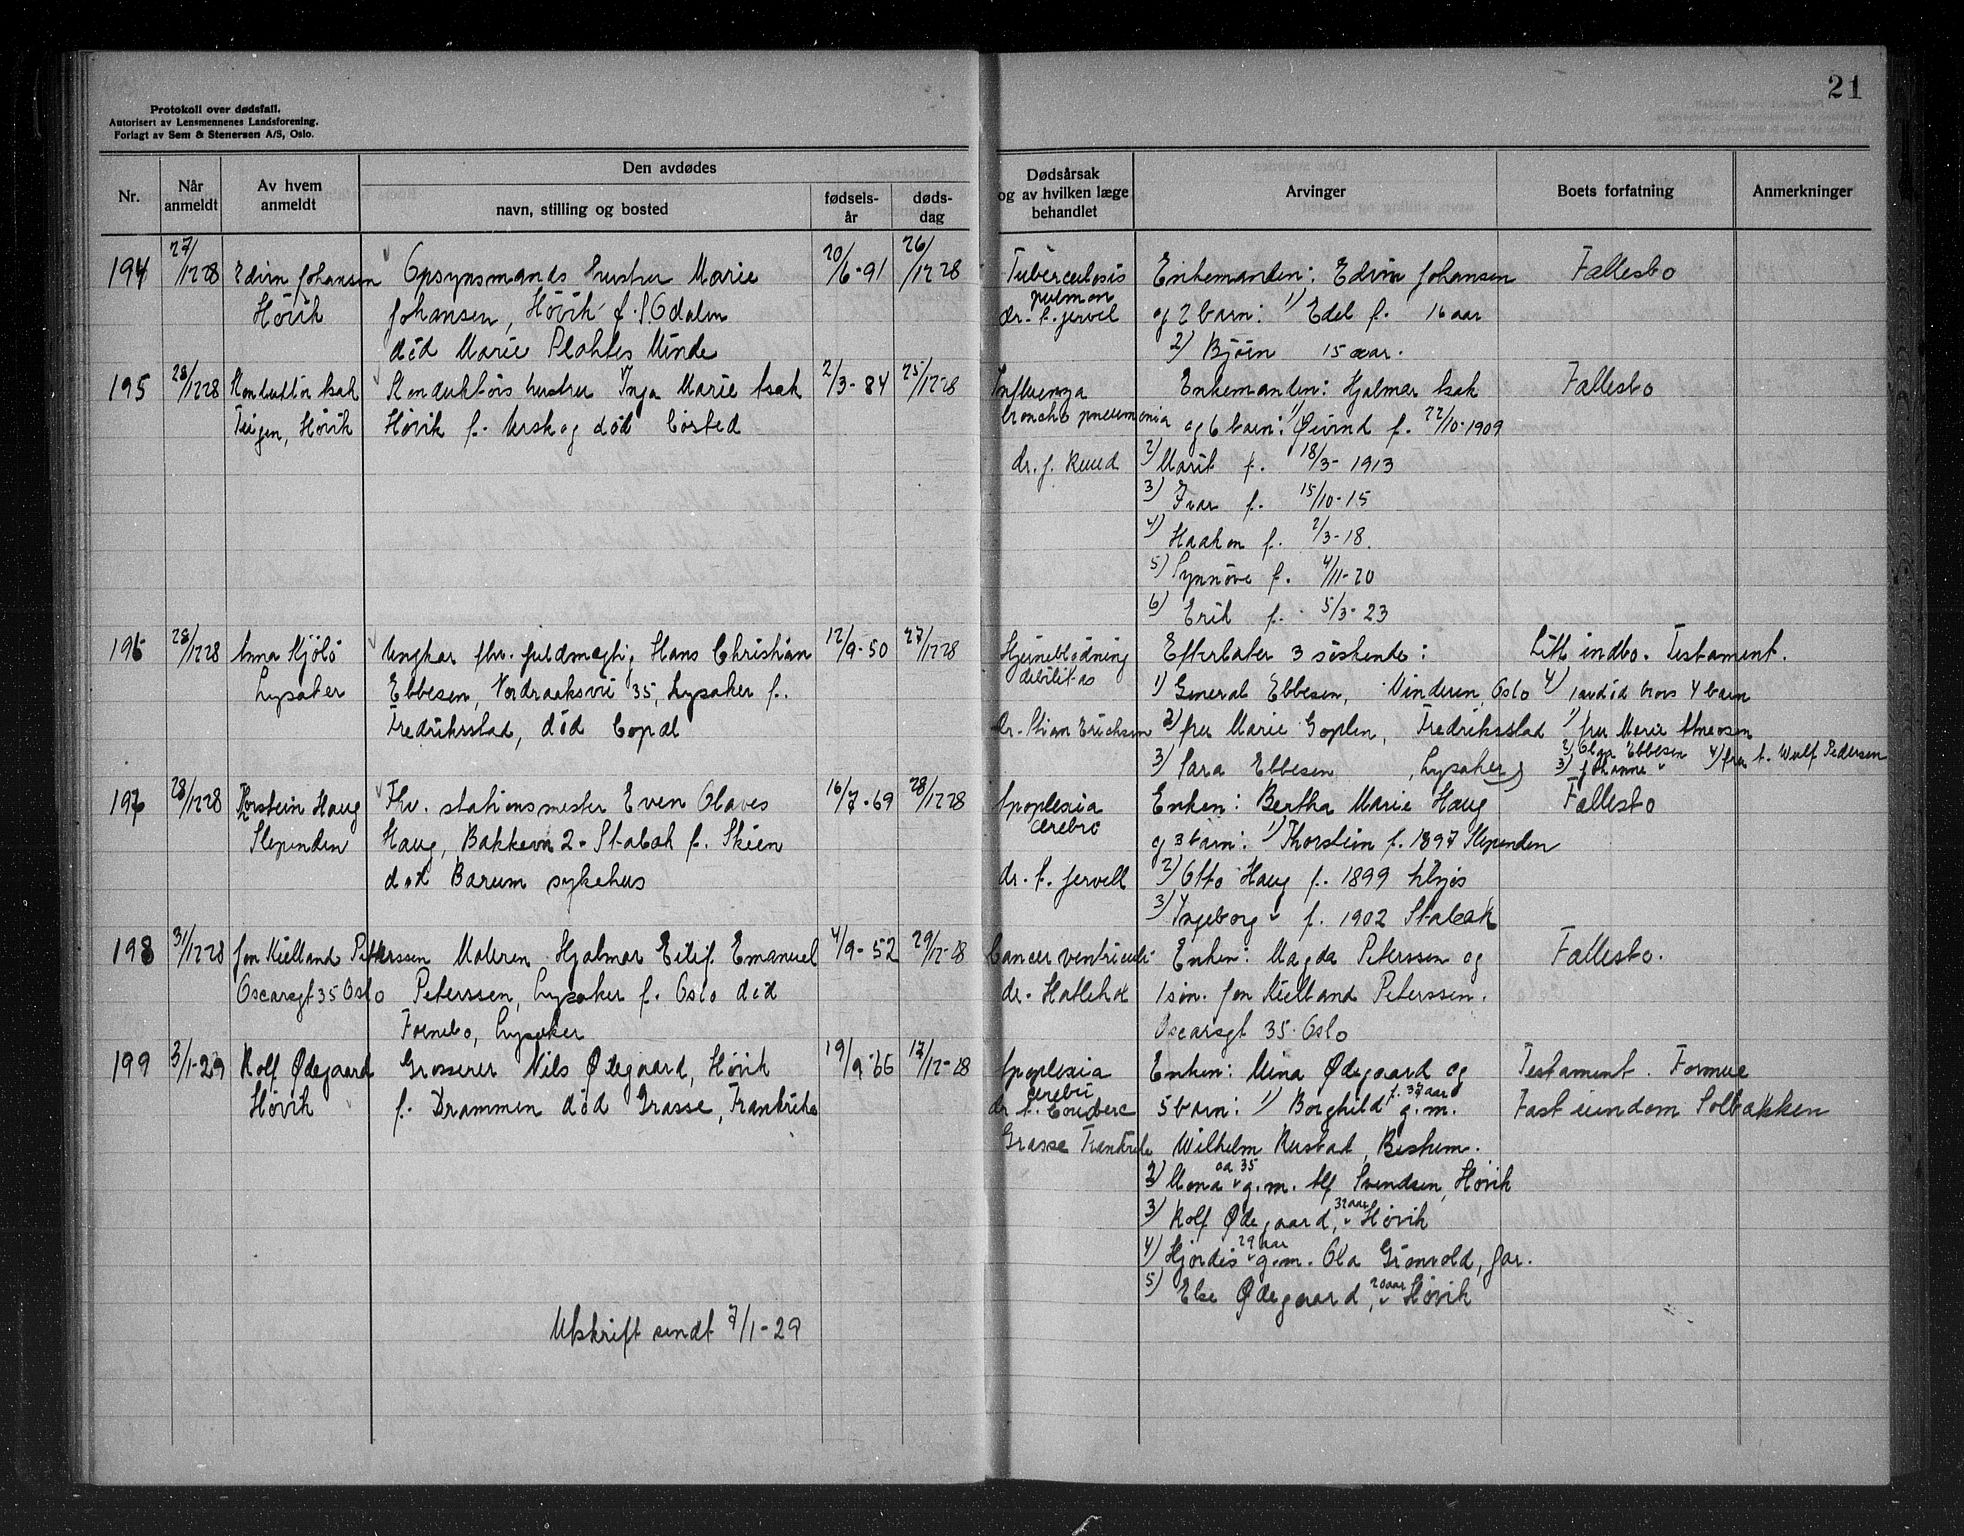 Protokoll over dødsfall.
Autorisert av Lensmennenes Landsforening.
Forlagt av Sem & Stenersen A/S, Oslo.
21
Nr.
Når anmeldt
Av hvem anmeldt
Den avdødes
navn, stilling og bosted
fødsels-år
døds-dag
Dødsårsak og av hvilken læge behandlet
Arvinger
Boets forfatning
Anmerkninger
194 27/12 28 Edvin Johansen Opsynsmands hustru Marie 20/6-91 26/12 28 Tuberculosis Enkemanden: Edvin Johansen Fællesbo
Høvik Johansen, Høvik f. S. Odalen pulmon og 2 barn: 1) Edel f. 16 aar
død Marie Plahtes Minde dr. f. Jervel 2) Bjørn 15 aar.
195 28/12 28 Konduktør Isak Konduktørs hustru Inga Marie Isak 2/3-84 25/12 28 Influenza Enkemanden: Hjalmar Isak Fællesbo
Høvik Høvik f. Urskog død broncho pneumonia og 6 barn: 1) Øivind f. 22/10-1909
dr. J. Ruud 2) Marit f. 18/3-1913
3) Ivar f. 15/10-15
4) Haakon f. 2/3-18.
5) Synnøve f. 4/11-20
6) Erik f. 5/3-23
196 28/12 28 Anna Kjölö Ungkar fhv. fuldmægtig Hans Christian 12/9-50 27/12 28 Hjerneblødning Efterlater 3 søskende: Litt indbo. Testament.
Lysaker Ebbesen, Nordraaksvei 35, Lysaker f. debilitas 1) General Ebbesen, Vinderen, Oslo 4) 1 avdød brors 4 barn
Fredriksstad, død dr. Stian Erichsen 2) fru Marie Goplen, Fredriksstad 1) fru Marie
3) Sara Ebbesen, Lysaker 2) Olga Ebbesen 3) Johanne " 4) fru Wulf Pedersen
197 28/12 28 Thorstein Haug Fhv. stationsmester Even Olaves 16/7-69 28/12 28 Apoplexia Enken: Bertha Marie Haug Fællesbo
Slependen Haug, Bakkevn 2. Stabæk f. Skien cerebri og 3 barn: 1) Thorstein f. 1897 Slependen
død Bærum sykehus dr. f. Jervell 2) Otto Haug f. 1899
3) Ingeborg " f. 1902 Stabæk
198 31/12 28 Jon Kielland Peterssen Maleren Hjalmar Eilif Emanuel 4/9-52 29/12-28 Cancer ventriculi Enken: Magda Peterssen og Fællesbo.
Oscarsgt 35 Oslo Peterssen, Lysaker f. Oslo død dr. 1 søn. Jon Kielland Peterssen.
Fornebo, Lysaker Oscarsgt 35. Oslo
199 3/1-29 Rolf Ødegaard Grosserer Nils Ødegaard, Høvik 19/9-66 17/12-28 Apoplexia Enken: Mina Ødegaard og Testament. Formue
Høvik f. Drammen død Grasse, Frankrike cerebri 5 barn: 1) Borghild f. 37 aar g.m. Fast eiendom Solbakken
Grasse Frankrike Wilhelm Rustad, Bestum.
2) Mona " ca 35 g.m. Alf Svendsen, Høvik
3) Rolf Ødegaard, 32 aar " Høvik
4) Hjørdis " 29 aar g.m. Ola Grønvold, Gar.
5) Else Ødegaard, 20 aar " Høvik
Utskrift sendt 7/1-29